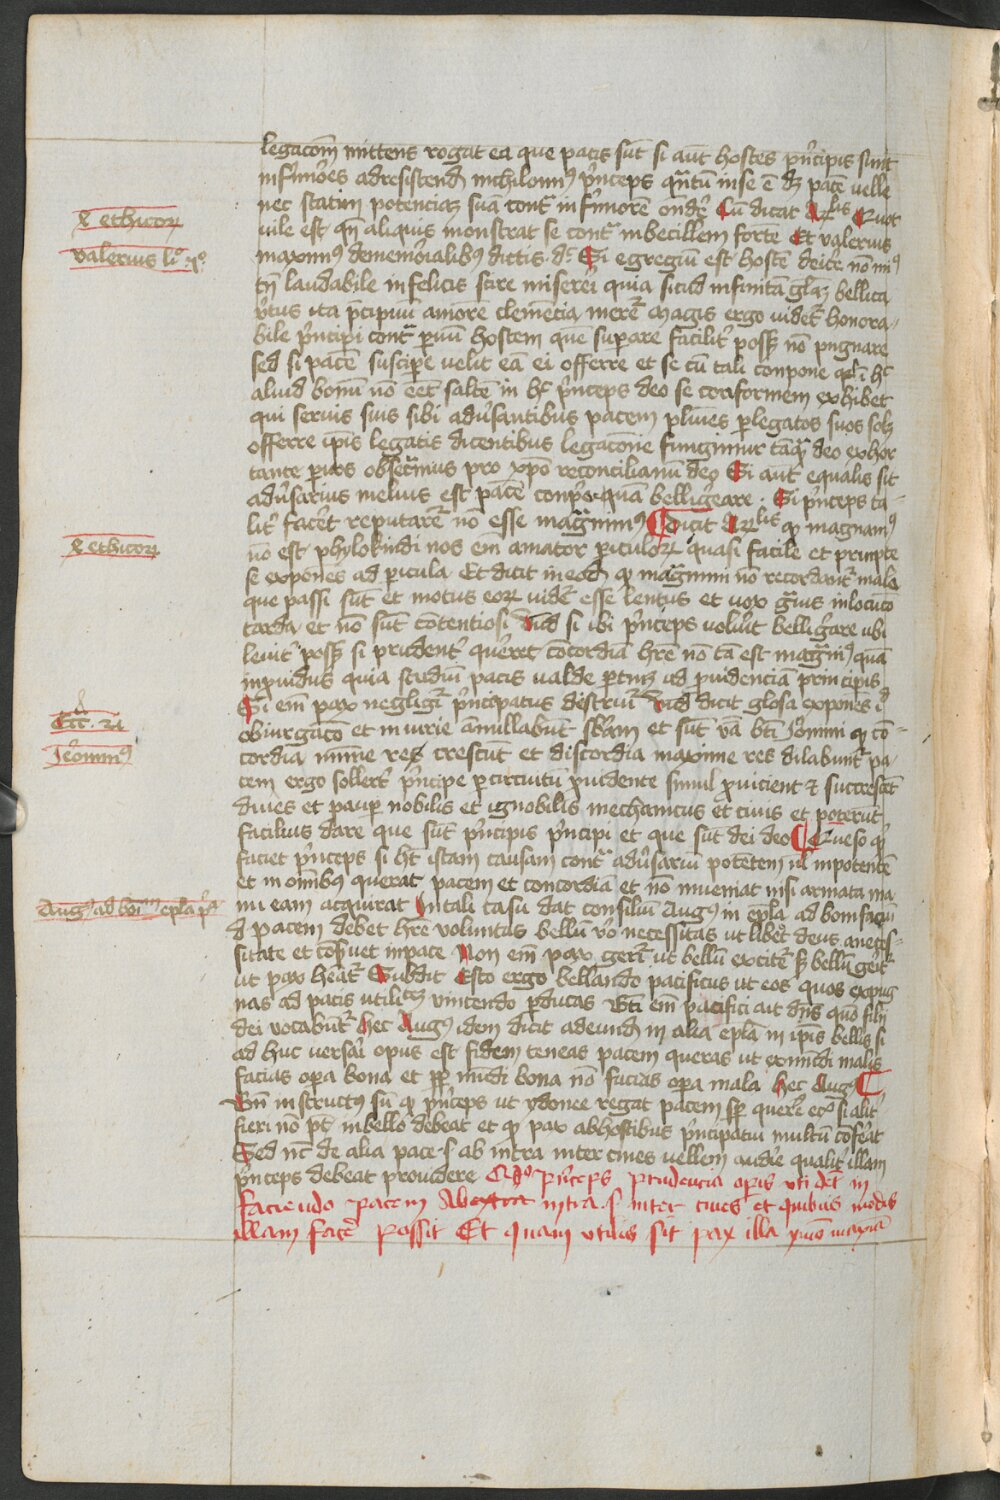 legacōm mittens rogat ea que pacis sūt si aūt hostes pͥncipis sint
infiriōes ad resistend̄ nichilomiꝰ pͥnceps qͣntū in se ē dꝫ pacē uelle
nec statim potenciaꝫ suā cont̄ infirmorē ondꝛ̄ Cū dicat Ar̄lis Quot
uile est qn̄ aliquis monstrat se cont̄ inbecillem forte Et valerius
4 ethicoꝝ
valerius li° 4°
maximꝰ de memōrialibꝰ dictis dꝛ̄ Si egregiū est hostē deicꝛ̄ nō miꝰ
tn̄ laudabile infelicis scire misereri quia sicud infinitā gl̄aꝫ bellica
vͥtus ita pͥcipuū amorē clemencia meret̄ Magis ergo uidet̄ honora-
bile pͥncipi cont̄ pͥuū hostem quē supare facilit̄ possꝫ nō pugnare
sed si pacē suscipe uelit eā ei offerre et se cū tali conpone qꝛ ī hͨ
aliud bonū nō eēt saltē in hͨ pͥnceps deo se conformem exhibet
qui seruis suis sibi adūsantibus pacem plūies p legatos suos solꝫ
offerre ip̄is legatis dicentibus legacione fungimur tāqͣ deo exhor
tante p nos obsecramus pro xp̄o reconciliamī deo Si aūt equalis sit
adūsarius melius est pacē conpōr quā belligerare Si pͥnceps ta-
lit̄ facēt reputaret̄ nō esse magnimꝰ Dicit Ar̄lis qͥ magnamꝰ
4 ethicoꝝ
nō est phylokindi nos em̄ amator piculoꝝ quasi facile et prompte
se exponēs ad picula Et dicit in eod̄ qͥ magnimi nō recordant̄ mala
que passi sūt et motus eoꝝ uidet̄ esse lentus et uox gͣuis in locucō
tarda et nō sūt contentiosi Vnd si ibi pͥnceps voluit belligare ubi
leuit̄ possꝫ si prudent̄ querēt cōcordiā hr̄e nō tā est magnimꝰ quā
inpuidus quia studiū pacis valde ptinꝫ ad prudenciam principis
Si em̄ pax negligit̄ pͥncipatus destruit̄ Vnd dicit glosa exponēs id
Ecc̄. 21
Jeronimꝰ
obiurgacō et iniurie annullabūt sb̄am et sūt v̄a bt̄i Jeronimi qͥ cō-
cordiā minime res crescūt et discordia maxime res dilabunt̄ pa-
cem ergo sollert̄ pͥncipe p circuitū puidente simul puicient et succrescēt
diues et paup nobilis et ignobilis mechanicus et ciuis et poterūt
facilius dare que sūt pͥncipis pͥncipi et que sūt dei deo Queso qͥ
faciet pͥnceps si hꝫ istam causam cont̄ adūsariū potētem ul̄ inpotentē
et in omībꝰ querat pacem et concordiā et nō inueniat nisi armata ma
Augꝰ ad boī epl̄a pͣ
nu eam acquirat In tali casu dat consiliū Augꝰ in epl̄a ad bonifaciū
Q̄ pacem debet hr̄e voluntas bellū v̄o necessitas ut libet deus a neces-
sitate et cōsuet in pace Non em̄ pax gerit̄ ut bellū excitet̄ sꝫ bellū gerit̄
ut pax heat̄ Subdit Esto ergo bellando pacificus ut eos quos expug
nas ad pacis utilitͣem vincendo pducas Bt̄i em̄ pacifici ait dn̄s quō filij
dei vocabūt̄ Hec Augꝰ idem dicit ad eund̄ in alia epl̄a in ip̄is bellis si
ad huc versari opus est fidem teneas pacem queras ut ex mūdi malis
facias opa bona et pp̄ mūdi bona nō facias opa mala Hec Augꝰ
Bn̄ instructꝰ sū qͥ pͥnceps ut ydonee regat pacem sp̄ querēt ecꝰ si alit̄
fieri nō pt̄ in bello debeat et qͥ pax ab hostibus pͥncipatui multū cōferat
Sed nūc de alia pace s ab intra inter ciues vellem audir̄e qualit̄ illam
pͥnceps debeat prouidere Qd̄o pͥnceps prudencia opis vti det̄ in
faciendo pacem Ab extra intra s inter ciues et quibus modis
illam facē possit Et quam vtilis sit pax illa ymō maxīa